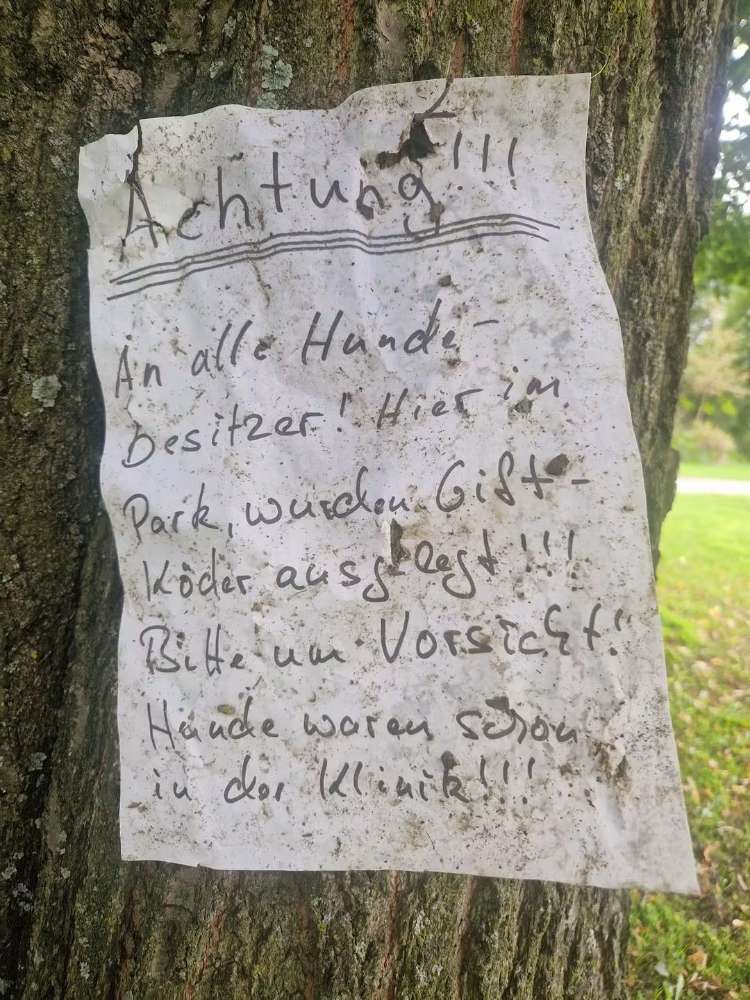 Achtung!!!
An alle Hunde-
besitzer! Hier im
Park, wurden Gift-
Köder ausgelegt!!!
Bitte um Vorsicht!
Hunde waren schon
in der Klinik!!!